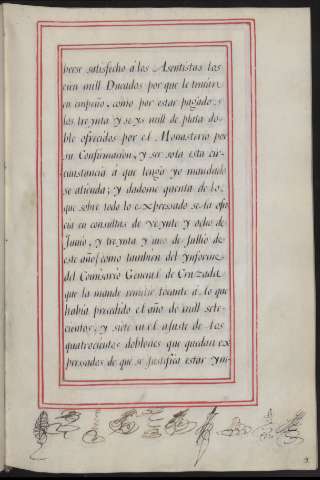 verse satisfecho á los Asentistas los
cien mill Ducados por que le tenian
en empeño, como por estar pagados
los treynta y seys mill de plata do-
ble ofrecidos por el Monasterio por
su Confirmacion, y ser sola esta cir-
cunstancia a que tengo yo mandado
se atienda; y dadome quenta de lo
que sobre todo lo expressado se le ofre
cia en consultas de veynte y ocho de
Junio, y treynta y uno de Jullio de
este año, como tambien del Ynforme
del Comisario General de Cruzada
que la mandè remitir tocante á lo que
havia precedido el año de mill sete-
cientos, y siete en el ajuste de los
quatrocientos doblones que quedan ex
pressados de que se justifica estar yn-